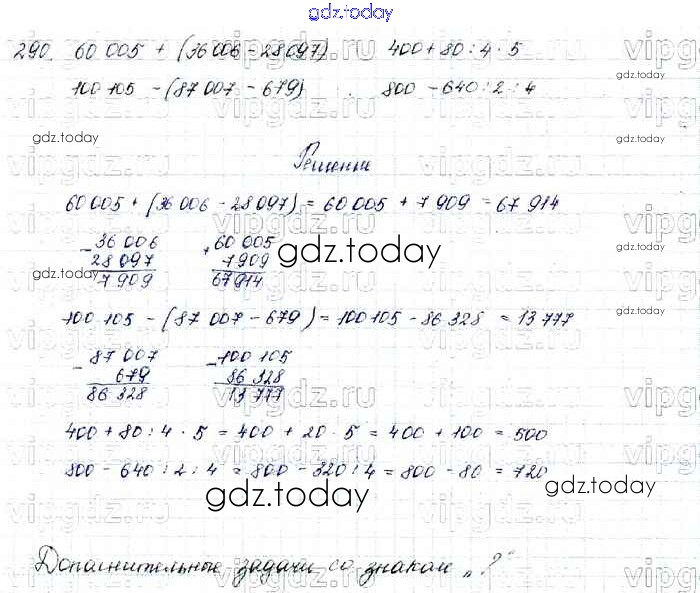 gdz.today
290. 60 005 + (36 006 - 28 097) 400 + 80 : 4 · 5
100 105 - (87 007 - 679) 800 - 640 : 2 : 4
gdz.today
Решение
60 005 + (36 006 - 28 097) = 60 005 + 7 909 = 67 914
- 36 006 + 60 005
28 097 7 909
7 909 67 914
gdz.today
gdz.today
100 105 - (87 007 - 679) = 100 105 - 86 328 = 13 777
- 87 007 - 100 105
679 86 328
86 328 13 777
gdz.today
400 + 80 : 4 · 5 = 400 + 20 · 5 = 400 + 100 = 500
800 - 640 : 2 : 4 = 800 - 320 : 4 = 800 - 80 = 720
gdz.today
gdz.today
Дополнительные задачи со знаком „?"
vipgdz.ru